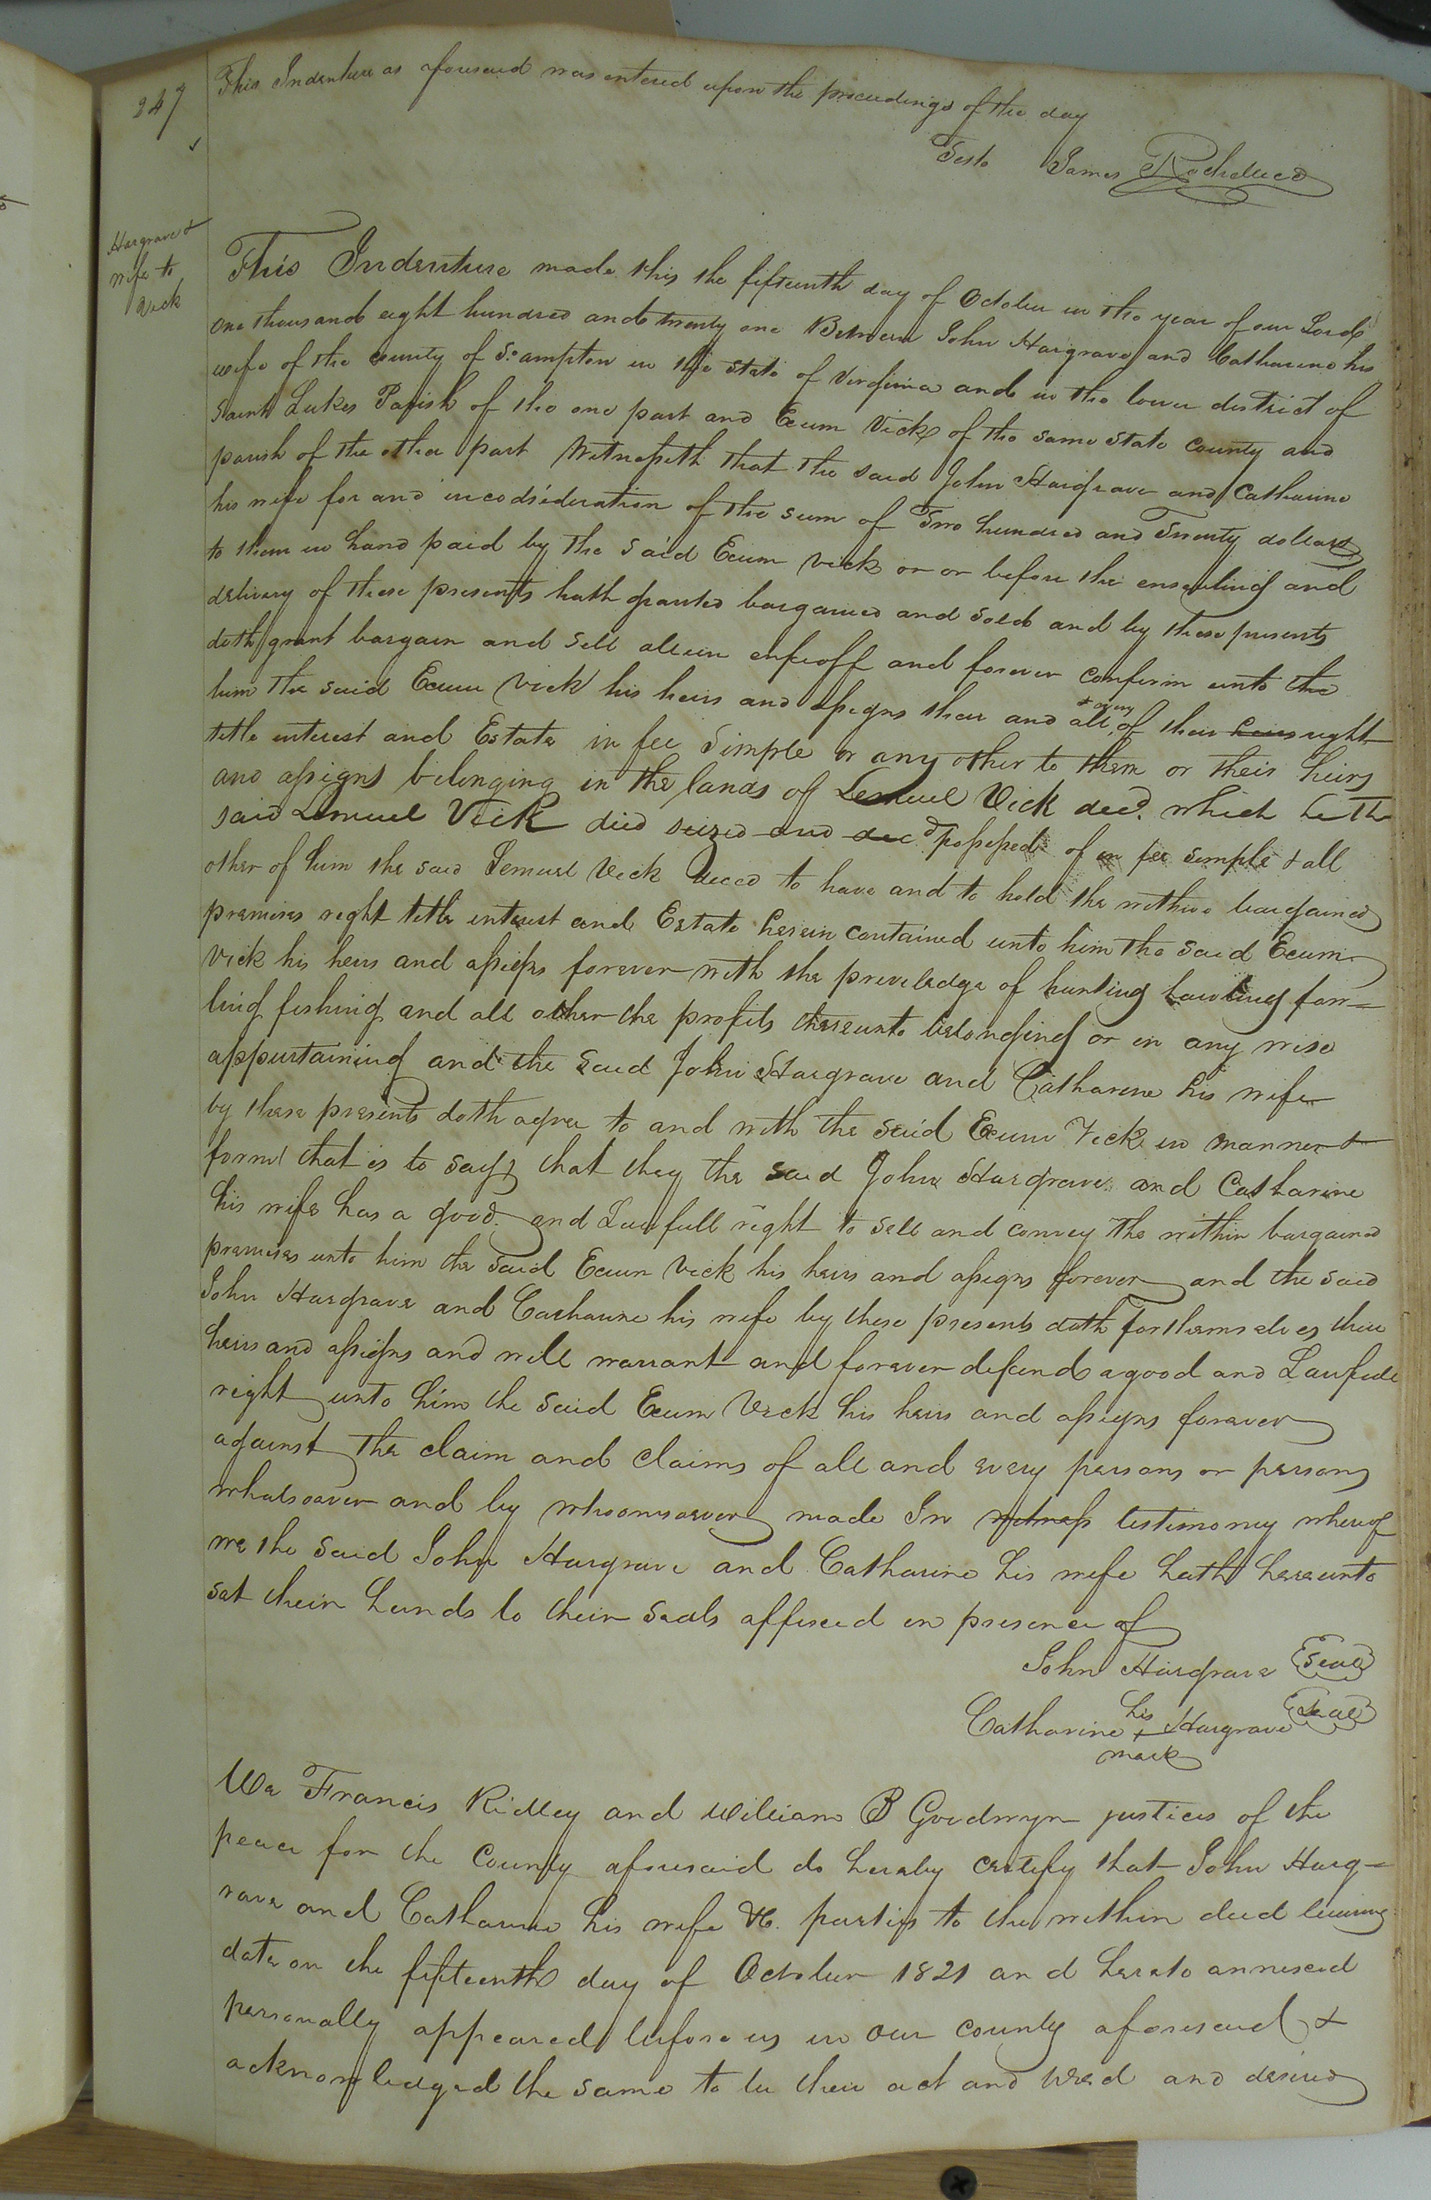 247
This Indenture as aforesaid was entered upon the proceedings of the day
Teste James Rochelle CS
Hargrave &
wife to
Vick
This Indenture made this the fifteenth day of October in the year of our Lord
one thousand eight hundred and twenty one Between John Hargrave and Catharine his
wife of the county of So.ampton in the State of Virginia and in the lower district of
Saint Lukes Parish of the one part and Exum Vick of the same state county and
parish of the other part Witnesseth that the said John Hargrave and Catharine
his wife for and in codsideration of the sum of Two hundred and Twenty dollars
to them in hand paid by the said Exum Vick or or before the ensealing and
delivery of these presents hath granted bargained and sold and by these presents
doth grant bargain and sell alien enfeoff and forever confirm unto the
him the said Exum Vick his heirs and assigns their and all & every of their heirs right
title interest and Estate in fee simple or any other to them or their heirs
and assigns belonging in the lands of Lemuel Vick decd. which he the
said Lemuel Vick died seized and decd possessed of in fee simple & all
other of him the said Lemuel Vick decd to have and to hold the within bargained
premises right title interest and Estate herein contained unto him the said Exum
Vick his heirs and assigns forever with the priveledge of hunting hawking fow=
ling fishing and all other the profits thereunto belonging or in any wise
appurtaining and the said John Hargrave and Catharine his wife
by these presents doth agree to and with the said Exum Vick in manner &
form that is to say, that they the said John Hargrave and Catharine
his wife has a good and Lawfull right to sell and convey the within bargained
premises unto him the said Exum Vick his heirs and assigns forever and the said
John Hargrave and Catharine his wife by these presents doth for themselves their
heirs and assigns and will warrant and forever defend a good and Lawfull
right unto him the said Exum Vick his heirs and assigns forever
against the claim and claims of all and every persons or persons
whatsoever and by whomsoever made In witness testimony whereof
we the said John Hargrave and Catharine his wife hath hereunto
set their hands to their seals affixed in presence of
John Hargrave Seal
his
Catharine + Hargrave Seal
mark
We Francis Ridley and William B Goodwyn justices of the
peace for the County aforesaid do hereby certify that John Harg=
rave and Catharine his wife &c. parties to the within deed bearing
date on the fifteenth day of October 1821 and hereto annexed
personally appeared before us in our county aforesaid &
acknowledged the same to be their act and deed and desired